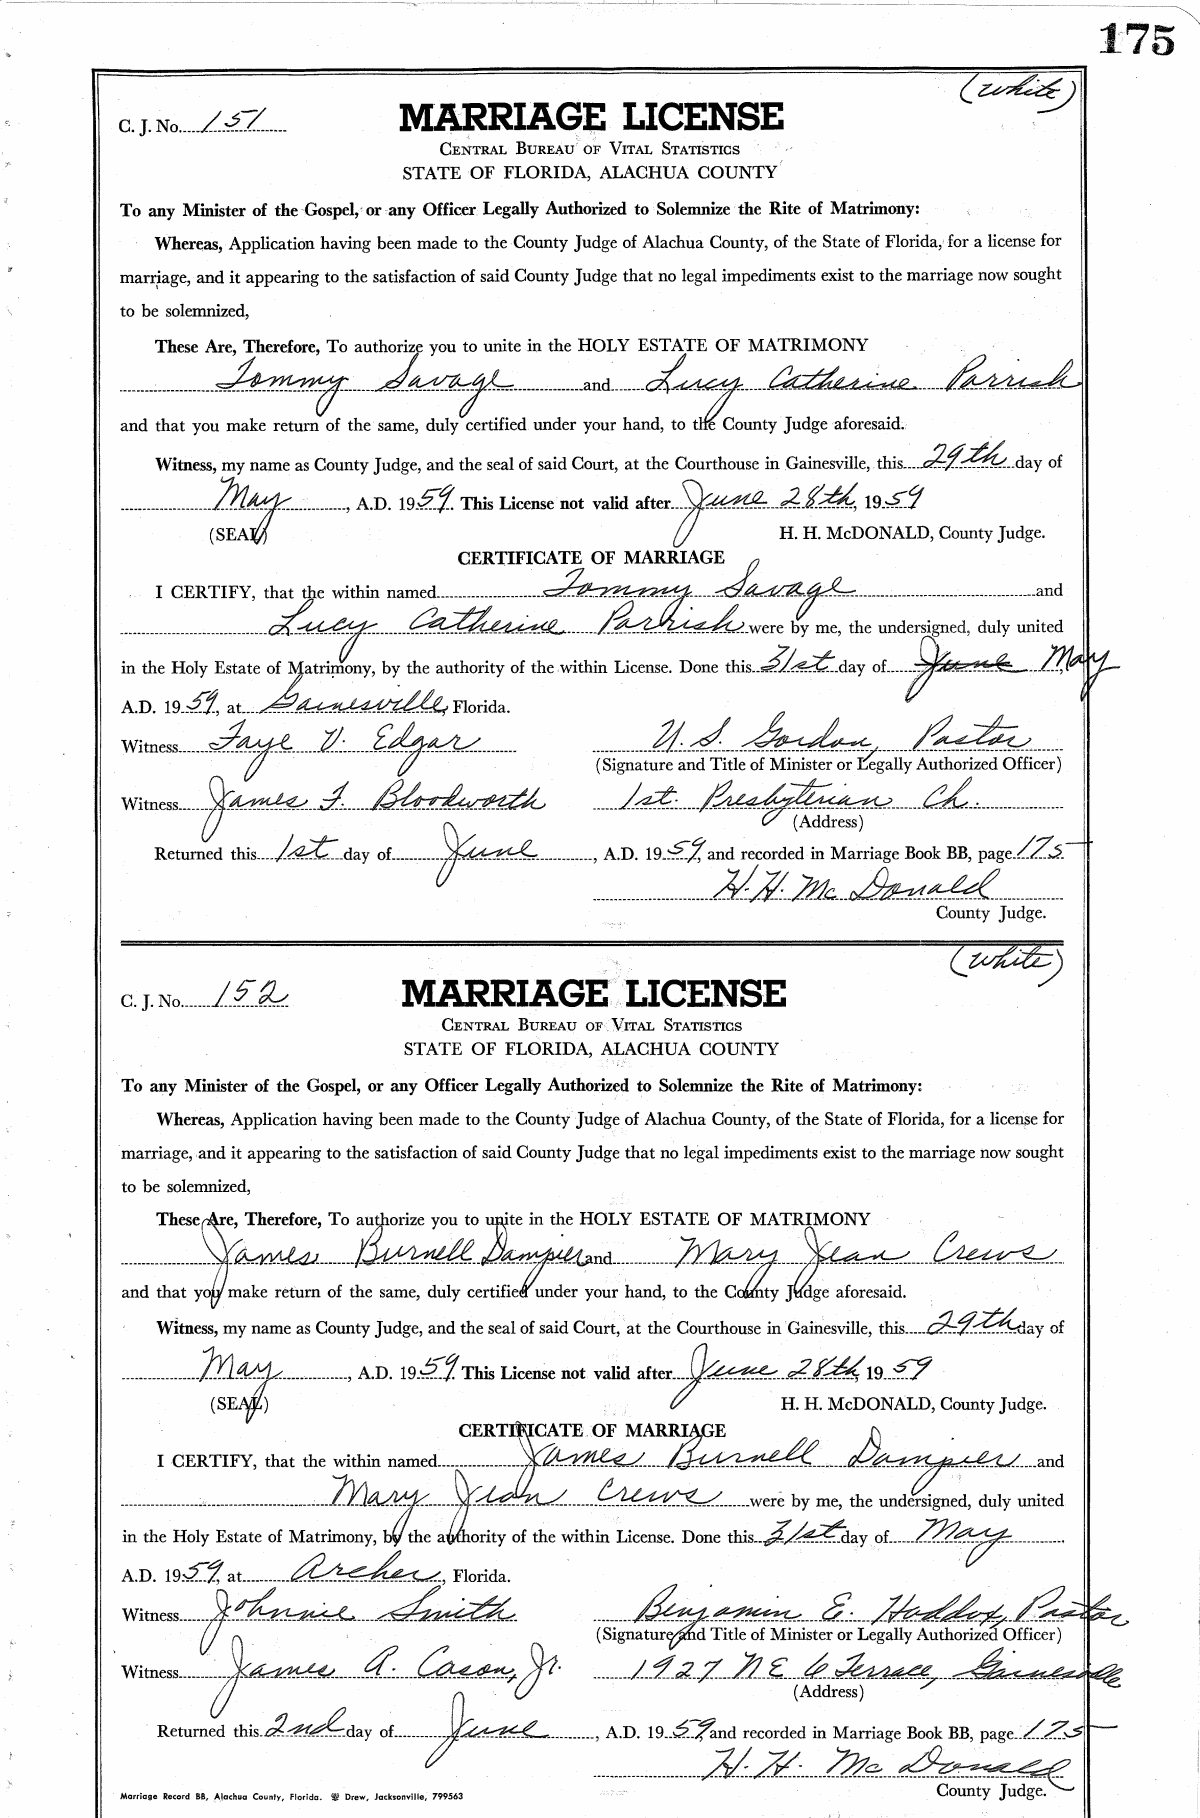 175
(white)
C. J. No. 151
MARRIAGE LICENSE
CENTRAL BUREAU OF VITAL STATISTICS
STATE OF FLORIDA, ALACHUA COUNTY
To any Minister of the Gospel, or any Officer Legally Authorized to Solemnize the Rite of Matrimony:
Whereas, Application having been made to the County Judge of Alachua County, of the State of Florida, for a license for
marriage, and it appearing to the satisfaction of said County Judge that no legal impediments exist to the marriage now sought
to be solemnized,
These Are, Therefore, To authorize you to unite in the HOLY ESTATE OF MATRIMONY
Tommy Savage and Lucy Catherine Parrish
and that you make return of the same, duly certified under your hand, to the County Judge aforesaid.
Witness, my name as County Judge, and the seal of said Court, at the Courthouse in Gainesville, this 29th day of
May, A.D. 1959. This License not valid after June 28th, 1959
(SEAL) H. H. McDONALD, County Judge.
CERTIFICATE OF MARRIAGE
I CERTIFY, that the within named Tommy Savage and
Lucy Catherine Parrish were by me, the undersigned, duly united
in the Holy Estate of Matrimony, by the authority of the within License. Done this 31st day of June May
A.D. 1959, at Gainesville, Florida.
Witness Faye V. Edgar U. S. Gordon, Pastor
(Signature and Title of Minister or Legally Authorized Officer)
Witness James F. Bloodworth 1st. Presbyterian Ch.
(Address)
Returned this 1st day of June, A.D. 1959, and recorded in Marriage Book BB, page 175
H. H. McDonald
County Judge.
(white)
C. J. No. 152
MARRIAGE LICENSE
CENTRAL BUREAU OF VITAL STATISTICS
STATE OF FLORIDA, ALACHUA COUNTY
To any Minister of the Gospel, or any Officer Legally Authorized to Solemnize the Rite of Matrimony:
Whereas, Application having been made to the County Judge of Alachua County, of the State of Florida, for a license for
marriage, and it appearing to the satisfaction of said County Judge that no legal impediments exist to the marriage now sought
to be solemnized,
These Are, Therefore, To authorize you to unite in the HOLY ESTATE OF MATRIMONY
James Burnell Dampier and Mary Jean Crews
and that you make return of the same, duly certified under your hand, to the County Judge aforesaid.
Witness, my name as County Judge, and the seal of said Court, at the Courthouse in Gainesville, this 29th day of
May, A.D. 1959. This License not valid after June 28th, 1959
(SEAL) H. H. McDONALD, County Judge.
CERTIFICATE OF MARRIAGE
I CERTIFY, that the within named James Burnell Dampier and
Mary Jean Crews were by me, the undersigned, duly united
in the Holy Estate of Matrimony, by the authority of the within License. Done this 31st day of May
A.D. 1959, at Archer, Florida.
Witness Johnnie Smith Benjamin E. Haddox, Pastor
(Signature and Title of Minister or Legally Authorized Officer)
Witness James A. Cason, Jr. 1927 NE 6 Terrace, Gainesville
(Address)
Returned this 2nd day of June, A.D. 1959, and recorded in Marriage Book BB, page 175
H. H. McDonald
County Judge.
Marriage Record BB, Alachua County, Florida. Drew, Jacksonville, 799563